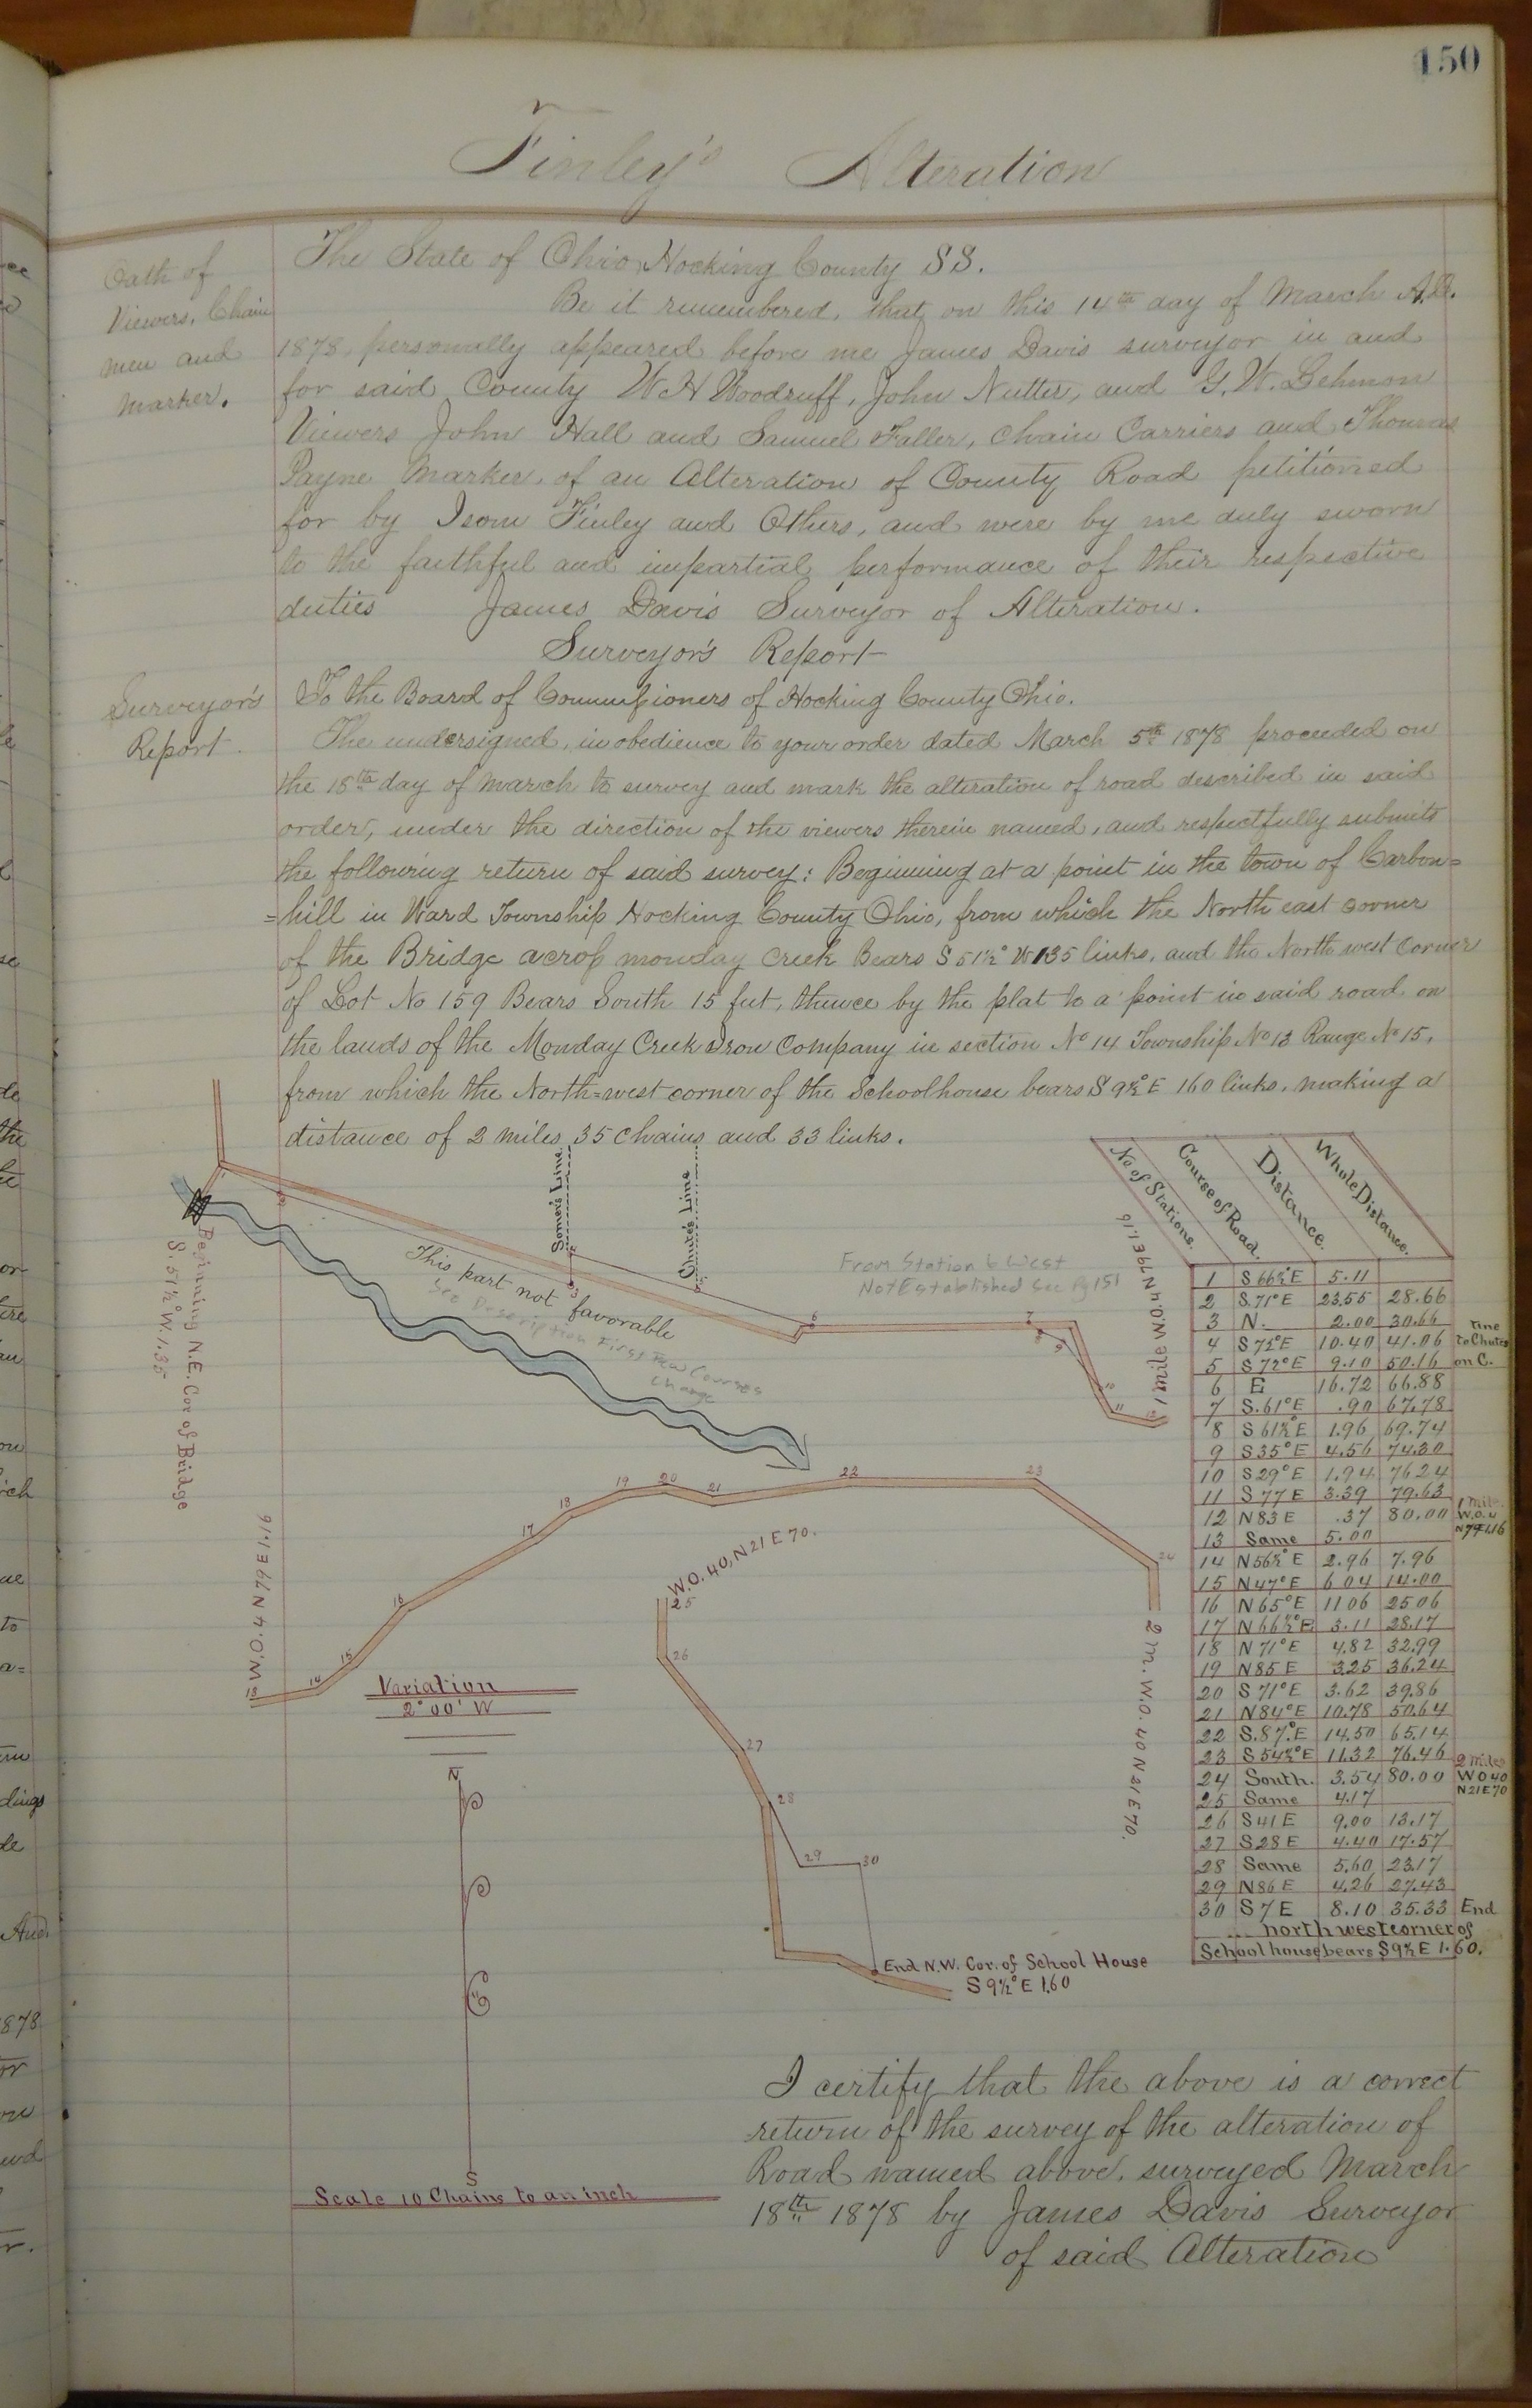 150
Finley's Alteration
Oath of
Viewers, Chain
men and
Marker.
The State of Ohio, Hocking County SS.
Be it remembered, that on this 14th day of March A.D.
1878, personally appeared before me James Davis surveyor in and
for said County W H Woodruff, John Nutter, and G. W. Lehmon
Viewers John Hall and Samuel Faller, Chain Carriers and Thomas
Payne Marker, of an Alteration of County Road petitioned
for by Isom Finley and Others, and were by me duly sworn
to the faithful and impartial performance of their respective
duties James Davis Surveyor of Alteration.
Surveyor's Report
Surveyor's
Report.
To the Board of Commissioners of Hocking County Ohio.
The undersigned, in obedience to your order dated March 5th 1878 proceeded on
the 18th day of March to survey and mark the alteration of road described in said
order, under the direction of the viewers therein named, and respectfully submits
the following return of said survey: Beginning at a point in the town of Carbon=
=hill in Ward Township Hocking County Ohio, from which the North east corner
of the Bridge across monday creek Bears S 51½° W 135 links, and the North west Corner
of Lot No 159 Bears South 15 feet, thence by the plat to a point in said road on
the lands of the Monday Creek Iron Company in section No 14 Township No 13 Range No 15,
from which the North=west corner of the Schoolhouse bears S 9½° E 160 links, making a
distance of 2 miles 35 Chains and 33 links.
Somers Line
Chutes Line
This part not favorable
See Description First Few Courses
Change
From Station 6 West
Not Established See Pg 151
Begining N.E. Cor of Bridge
S. 51½° W. 1.35
1 mile W.O. 4 N 79 E 1.16
No of Stations. Course of Road. Distance. Whole Distance.
1 S 66½° E 5.11
2 S. 71° E 23.55 28.66
3 N. 2.00 30.66
4 S 72° E 10.40 41.06
5 S 72° E 9.10 50.16
6 E 16.72 66.88
7 S. 61° E .90 67.78
8 S 61½° E 1.96 69.74
9 S 35° E 4.56 74.30
10 S 29° E 1.94 76.24
11 S 77 E 3.39 79.63
12 N 83 E .37 80.00
13 Same 5.00
14 N 56½° E 2.96 7.96
15 N 47° E 6 04 14.00
16 N 65° E 11 06 25 06
17 N 66½° E 3.11 28.17
18 N 71° E 4.82 32.99
19 N 85 E 3.25 36.24
20 S 71° E 3.62 39.86
21 N 84° E 10.78 50.64
22 S. 87° E 14.50 65.14
23 S 54½° E 11.32 76.46
24 South. 3.54 80.00
25 Same 4.17
26 S 41 E 9.00 13.17
27 S 28 E 4.40 17.57
28 Same 5.60 23.17
29 N 86 E 4.26 27.43
30 S 7 E 8.10 35.33 End
north west corner of
School house bears S 9½ E 1.60.
to Chutes
on C.
1 mile.
W.O. 4
N 79 E 1.16
2 miles
W O 40
N 21 E 70
W.O. 4 N 79 E 1.16
13 14 15 16 17 18 19 20 21 22 23 24
W.O. 40, N 21 E 70.
2 m. W.O. 40 N 21 E 70.
25
26
27
28
29 30
Variation
2° 00' W
N
S
End N.W. Cor. of School House
S 9½° E 1.60
Scale 10 Chains to an inch
I certify that the above is a correct
return of the survey of the alteration of
Road named above, surveyed March
18th 1878 by James Davis Surveyor
of said Alteration